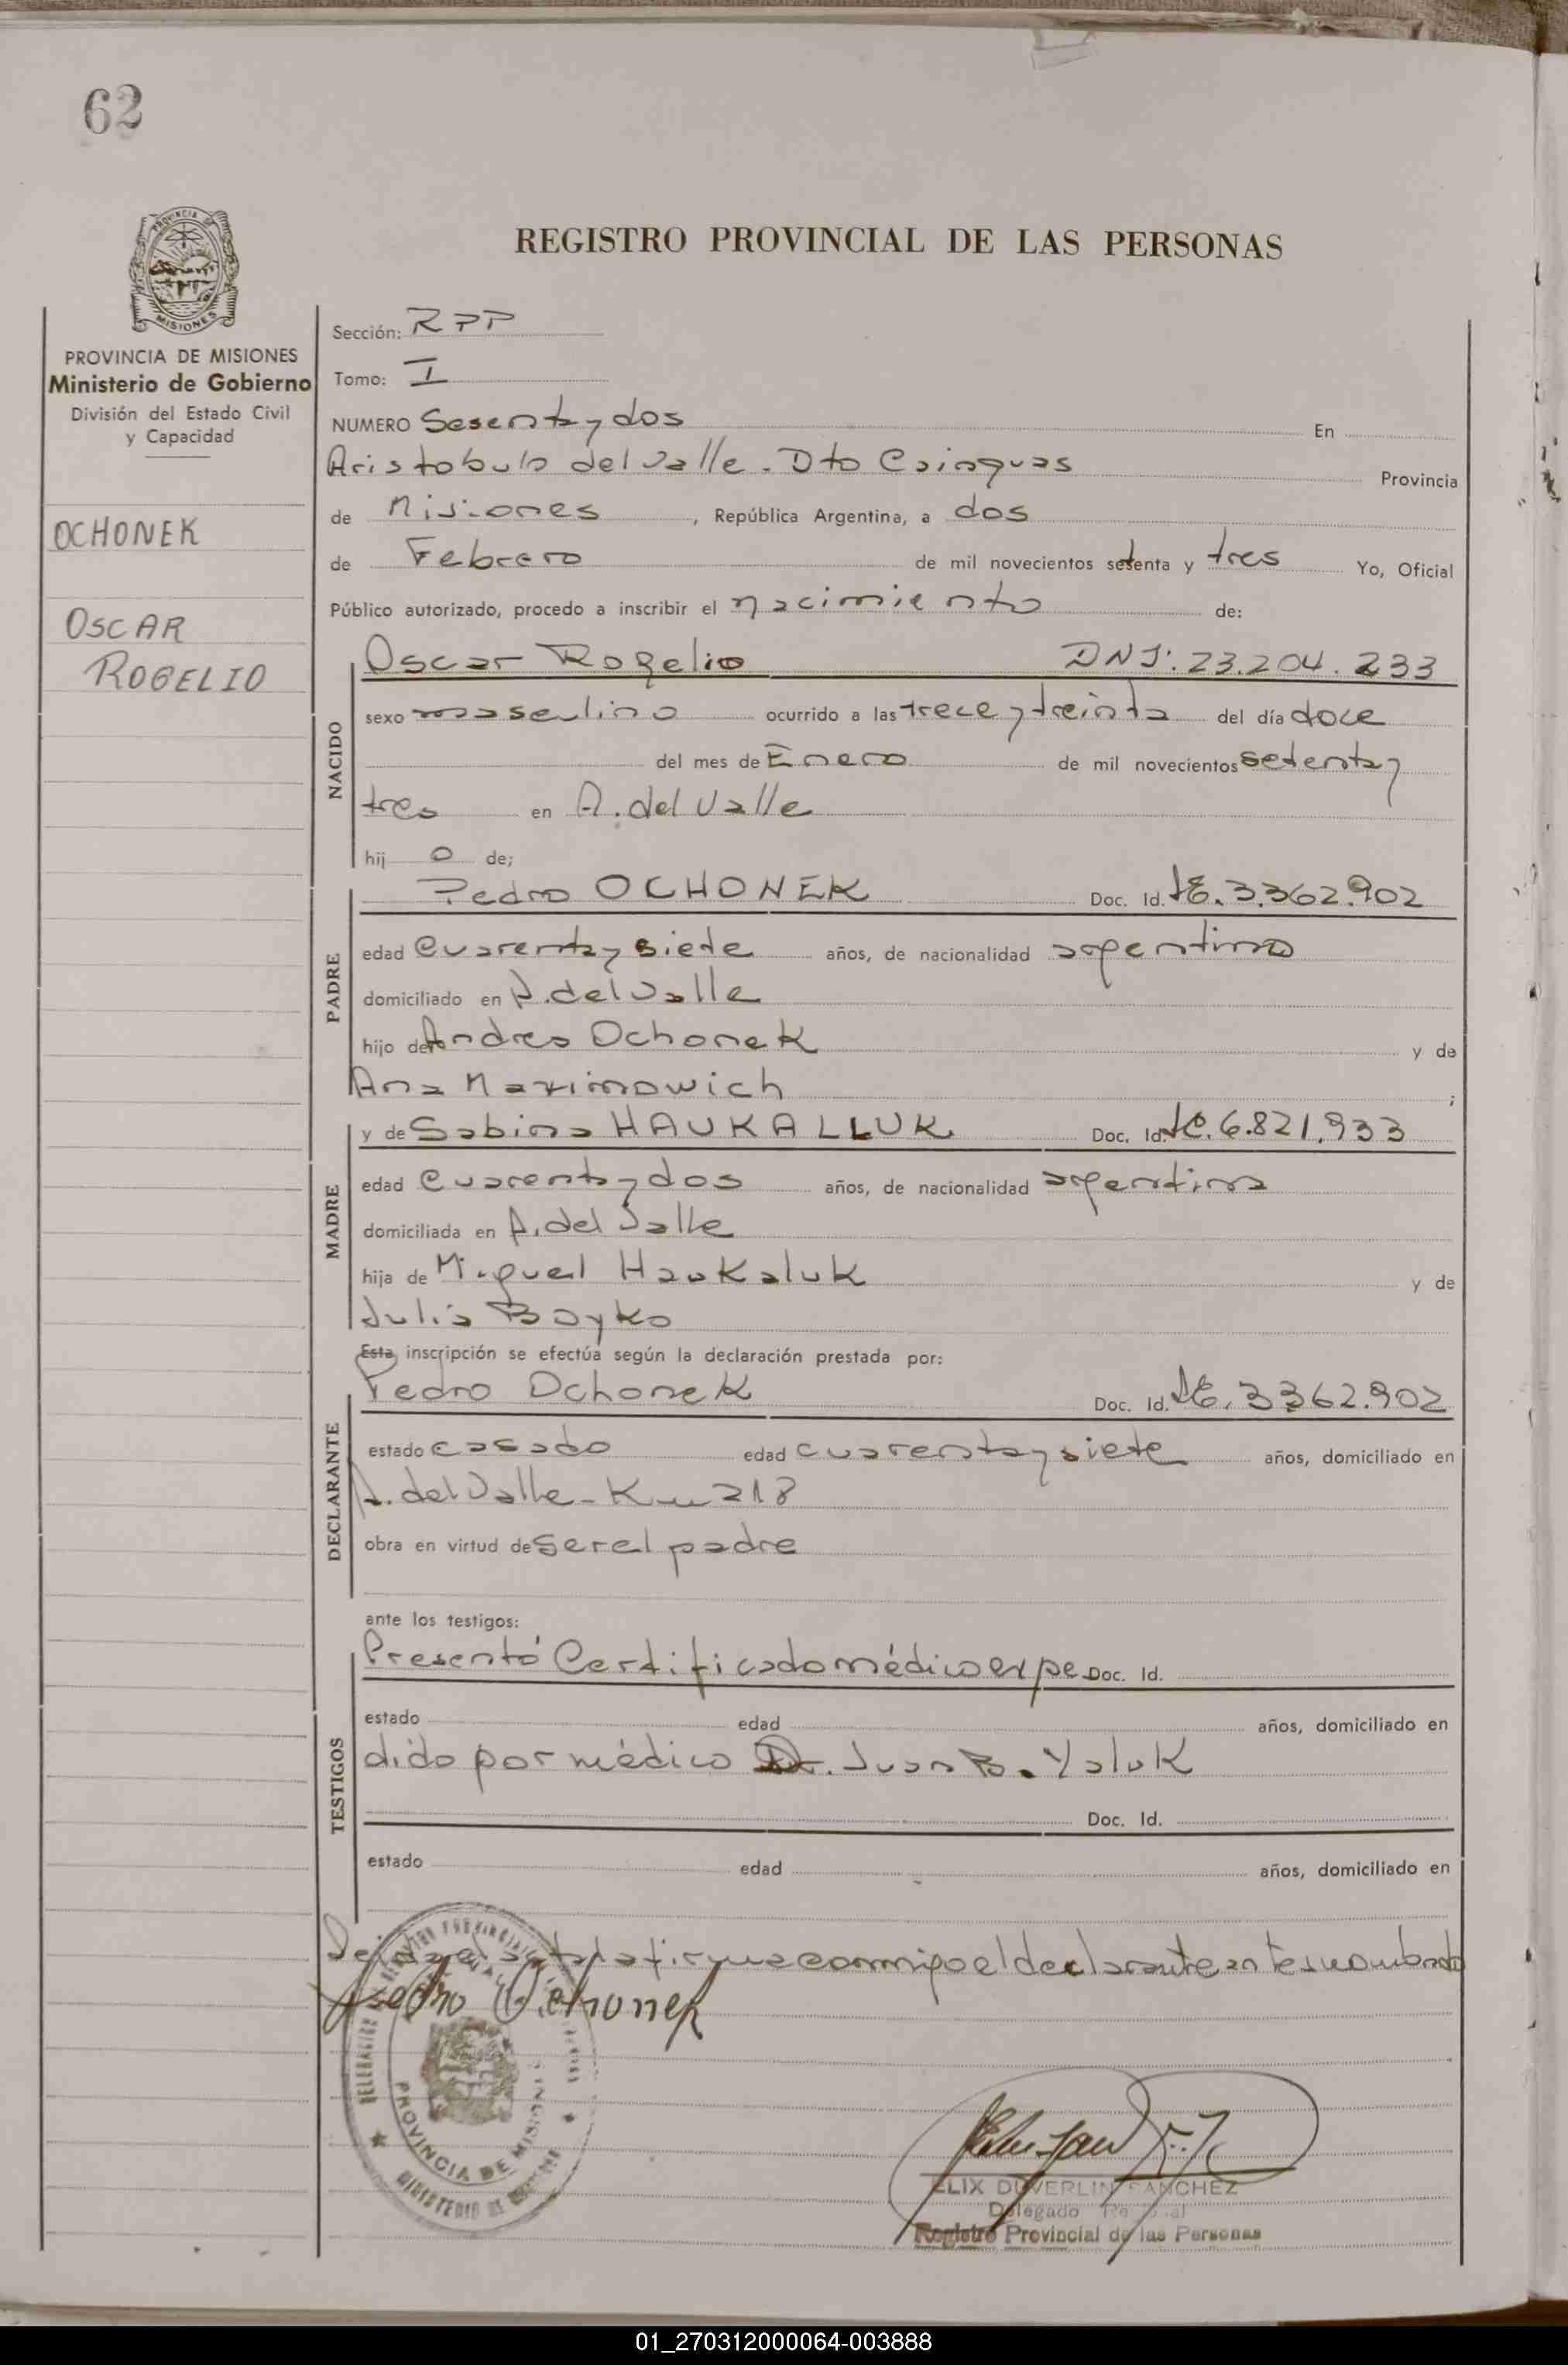 62
PROVINCIA DE MISIONES
Ministerio de Gobierno
División del Estado Civil
y Capacidad
OCHONEK
OSCAR
ROGELIO
REGISTRO PROVINCIAL DE LAS PERSONAS
Sección: RPP
Tomo: I
NUMERO Sesenta y dos En
Aristobulo del Valle - Dto Cainguas Provincia
de Misiones, República Argentina, a dos
de Febrero de mil novecientos setenta y tres Yo, Oficial
Público autorizado, procedo a inscribir el nacimiento de:
NACIDO
Oscar Rogelio DNI: 23.204.233
sexo masculino ocurrido a las trece y treinta del día doce
del mes de Enero de mil novecientos setenta y
tres en A. del Valle
hij o de;
PADRE
Pedro OCHONEK Doc. Id. LE. 3.362.902
edad cuarenta y siete años, de nacionalidad argentina
domiciliado en A. del Valle
hijo de Andres Ochonek y de
Ana Maximowich ;
MADRE
y de Sabina HAUKALLUK Doc. Id. LC. 6.821.933
edad cuarenta y dos años, de nacionalidad argentina
domiciliada en A. del Valle
hija de Miguel Haukaluk y de
Julia Boyko
Esta inscripción se efectúa según la declaración prestada por:
DECLARANTE
Pedro Ochonek Doc. Id. LE. 3362.902
estado casado edad cuarenta y siete años, domiciliado en
A. del Valle - Km 218
obra en virtud de ser el padre
ante los testigos:
TESTIGOS
Presentó Certificado médico expe Doc. Id.
estado edad años, domiciliado en
dido por médico Dr. Juan B. Yaluk
Doc. Id.
estado edad años, domiciliado en
firma conmigo el declarante antes nombrado
Pedro Ochonek
PROVINCIA DE MISIONES
MINISTERIO DE
ELIX DUVERLIN SANCHEZ
Delegado
Registro Provincial de las Personas
01_270312000064-003888